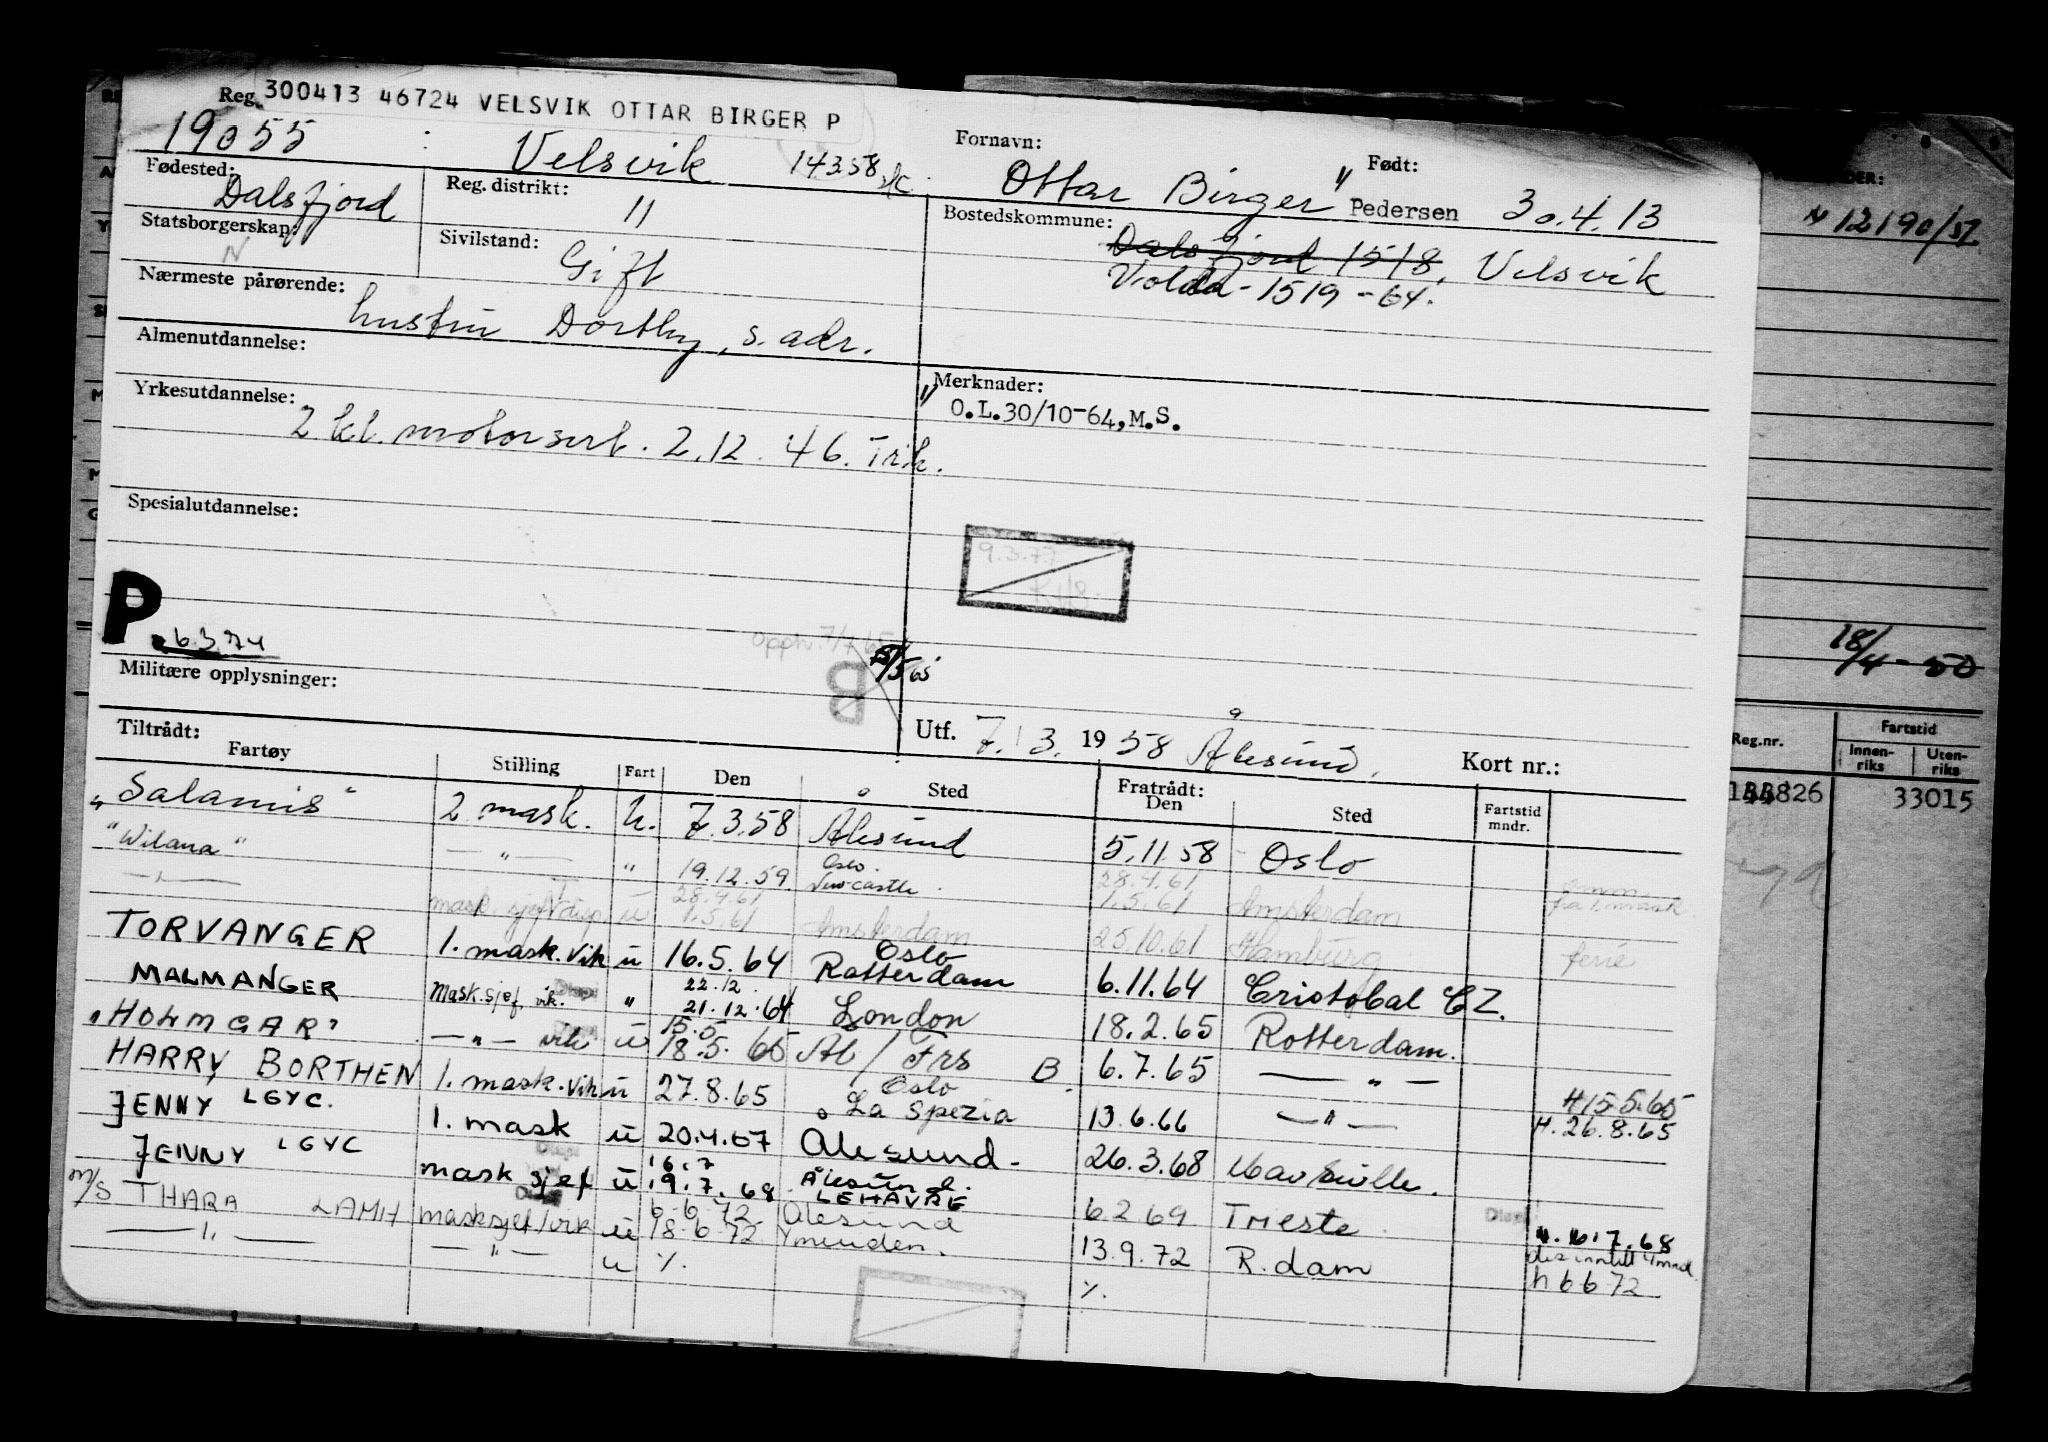 Reg. 300413 46724 VELSVIK OTTAR BIRGER P
19055 Velsvik 14358
Fornavn: Ottar Birger " Pedersen
Født: 30.4.13
Fødested: Dalsfjord
Reg. distrikt: 11
Bostedskommune: Dalsfjord 1518, Velsvik
Volda - 1519 - 64.
Statsborgerskap: N
Sivilstand: Gift
Nærmeste pårørende: hustru Dorthy, s. adr.
Almenutdannelse:
Merknader:
" O.L.30/10-64,M.S.
Yrkesutdannelse: 2 kl. motorsert. 2.12.46. Trh.
Spesialutdannelse:
9.3.77
P 6.3.74
Opph. 7/7 65
B /5 65
Militære opplysninger:
Utf. 7. 3. 1958 Ålesund.
Kort nr.:
Tiltrådt:
Fartøy Stilling Fart Den Sted Fratrådt: Den Sted Fartstid mndr.
"Salamis" 2 mask. u. 7.3.58 Ålesund 5.11.58 Oslo
"Wilana" — " — " 19.12.59 Oslo Newcastle 28.4.61
— " — mask. sjef disp. u 28.4.61 1.5.61 Amsterdam 1.5.61 Amsterdam
25.10.61 Hamburg ferie
TORVANGER 1. mask. vik u 16.5.64 Oslo Rotterdam 6.11.64 Cristobal CZ.
MALMANGER Mask.sjef. vik. " 22.12 21.12.64 London 18.2.65 Rotterdam.
"HOLMGAR" — " — vik u 15.5 18.5.65 Al / Frs B. 6.7.65 — " — H 15.5.65
HARRY BORTHEN 1. mask. vik u 27.8.65 Oslo La Spezia 13.6.66 — " — H. 26.8.65
JENNY LGYC. 1. mask u 20.4.67 Ålesund - 26.3.68
JENNY LGYC mask sjef u 16.7 19.7.68 Ålesund. LEHAVRE 6 2 69 Trieste 16.7.68
m/s THARA LAMH masksjef/vik u 6-6-72 18-6-72 Ålesund Ymuiden. 13.9.72 R.dam
h 6 6 72
— " — — " — u %. %.
N 12190/57
18/4-50
Reg.nr. Fartstid
Innen-riks Uten-riks
33015